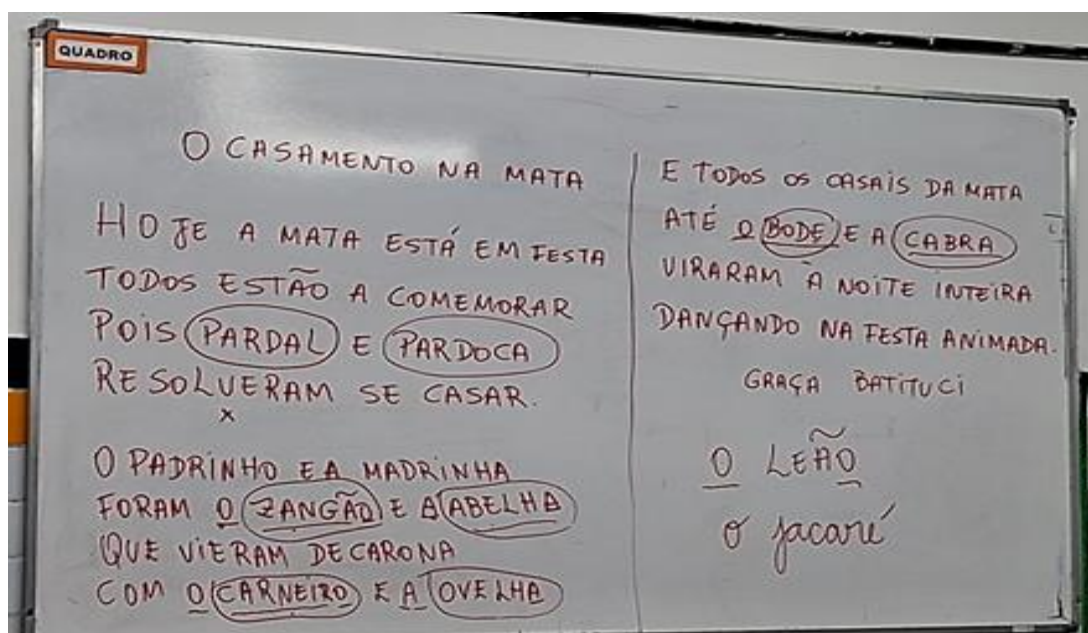 QUADRO
O CASAMENTO NA MATA
HOJE A MATA ESTÁ EM FESTA
TODOS ESTÃO A COMEMORAR
POIS PARDAL E PARDOCA
RESOLVERAM SE CASAR.
x
O PADRINHO E A MADRINHA
FORAM O ZANGÃO E A ABELHA
QUE VIERAM DE CARONA
COM O CARNEIRO E A OVELHA
E TODOS OS CASAIS DA MATA
ATÉ O BODE E A CABRA
VIRARAM A NOITE INTEIRA
DANÇANDO NA FESTA ANIMADA.
GRAÇA BATITUCI
O LEÃO
o jacaré